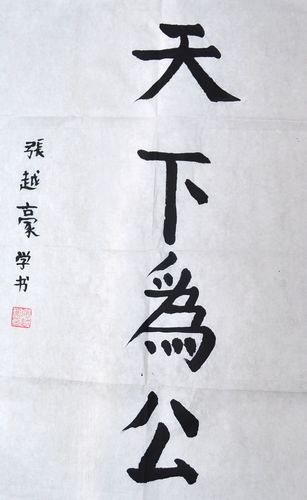 天下為公
張越豪学书